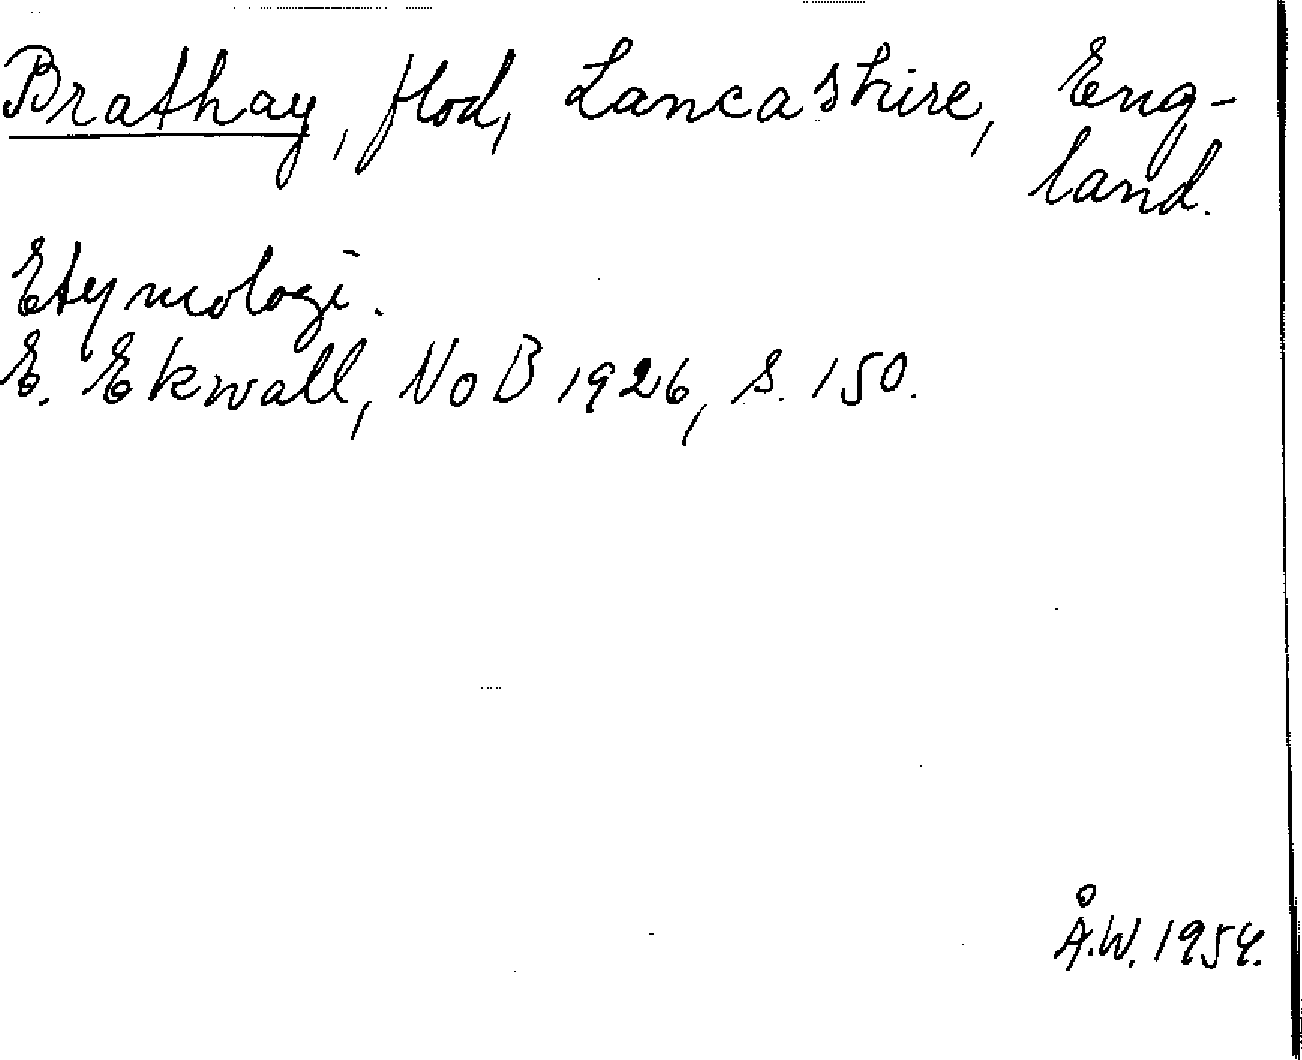 Brathay, flod, Lancashire, Eng-
land.
Etymologi.
E. Ekwall, NoB 1926, s. 150.
Å.W. 1954.